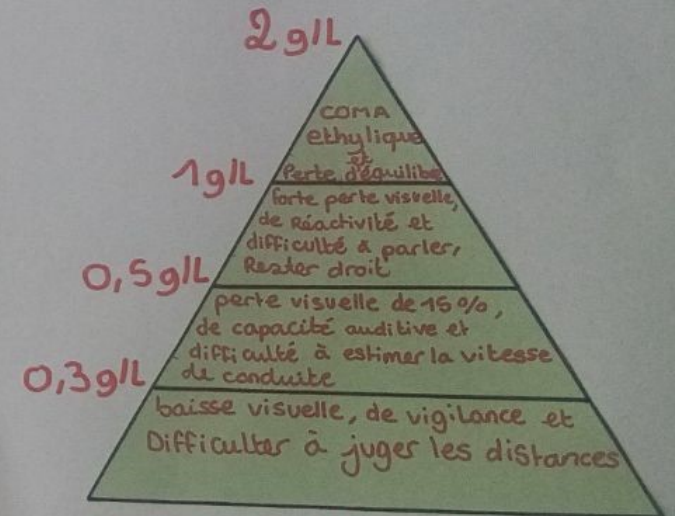 2 g/L
COMA
ethylique
et
Perte d'équilibe
1g/L
forte perte visuelle,
de Réactivité et
difficulté à parler,
Rester droit
0,5g/L
perte visuelle de 15%,
de capacité auditive et
difficulté à estimer la vitesse
de conduite
0,3g/L
baisse visuelle, de vigilance et
Difficulter à juger les distances